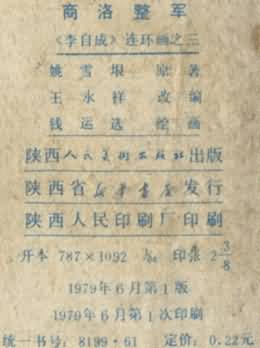 商洛整军
《李自成》连环画之三
姚雪垠 原著
王永祥 改编
钱运选 绘画
陕西人民美术出版社出版
陕西省新华书店发行
陕西人民印刷厂印刷
开本 787×1092 1/64 印张 2 3/8
1979年6月第1版
1979年6月第1次印刷
统一书号：8199·61 定价：0.22元